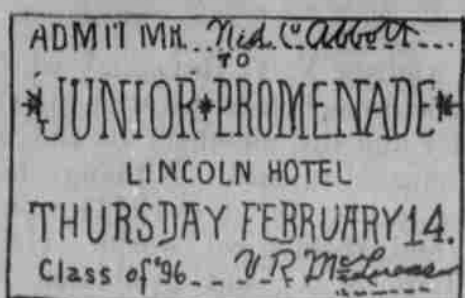 ADMIT MR. Ned. C. Abbott
TO
JUNIOR PROMENADE
LINCOLN HOTEL
THURSDAY FEBRUARY 14.
Class of '96 V R